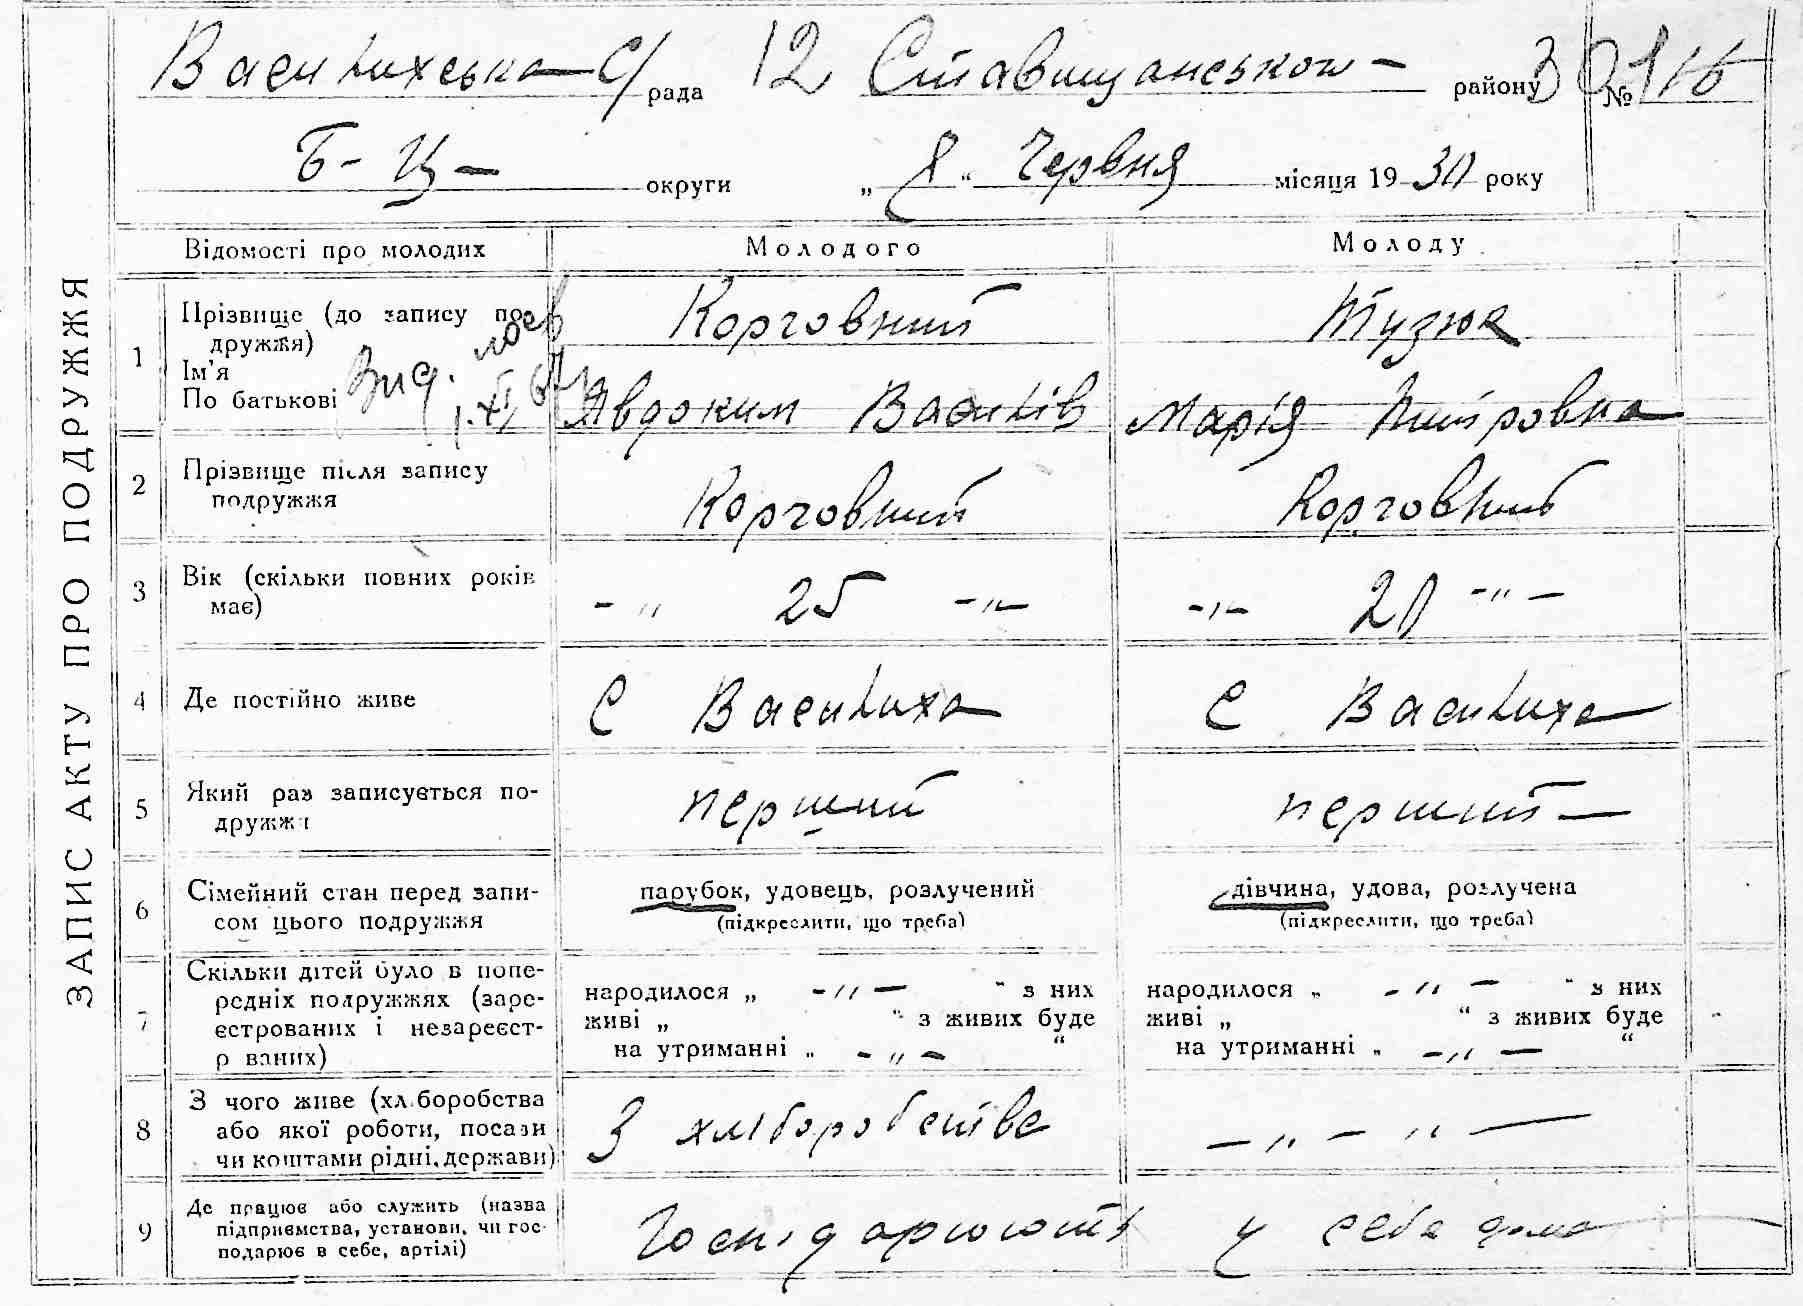 ЗАПИС АКТУ ПРО ПОДРУЖЖЯ
Василихська С/ рада 12 Ставищанського району 30 №
Б-Ц- округи „ 8 “ Червня місяця 19 30 року
Відомості про молодих Молодого Молоду
1 Прізвище (до запису подружжя) Корчовний Тузюк
Ім'я
По батькові Явдоким Василів Марія Дмитровна
Вид.
1.XI
2 Прізвище після запису
подружжя Корчовний Корчовний
3 Вік (скільки повних років
має) -„ 25 -„- -„- 20 -„-
4 Де постійно живе С Василиха С Василиха
5 Який раз записується по-
дружжя перший перший
6 Сімейний стан перед запи-
сом цього подружжя
парубок, удовець, розлучений дівчина, удова, розлучена
(підкреслити, що треба) (підкреслити, що треба)
7 Скільки дітей було в попе-
редніх подружжях (заре-
єстрованих і незареєст-
р ваних)
народилося „ -„- “ з них народилося „ -„- “ з них
живі „ “ з живих буде живі „ “ з живих буде
на утриманні „ -„- “ на утриманні „ -„- “
8 З чого живе (хл.боробства
або якої роботи, посади
чи коштами рідні, держави)
З хліборобства -„-„-
9 Де працює або служить (назва
підприємства, установи, чи гос-
подарює в себе, артілі)
Господарюють у себе дома